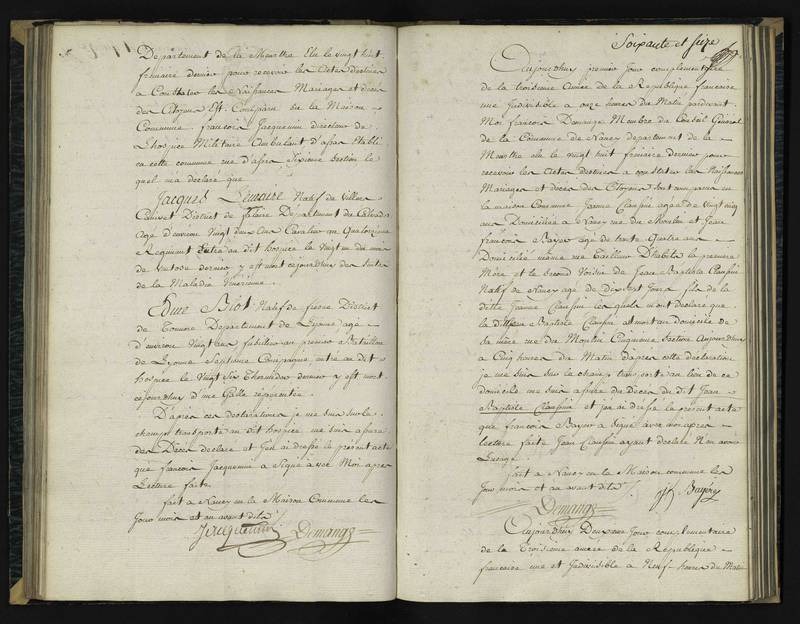 Département de la Meurthe Elu le vingt huit
frimaire dernier pour recevoir les Actes destinés
a Constater les Naissances Mariages et décès
des Citoyens Est Comparu en la Maison
Commune françois Jacquemin directeur de
L'hospice Militaire Ambulant d'assas Etabli
en cette commune rue d'assas Sixieme Section le
quel m'a declaré que
Jacques Lemaire Natif de Villers
Canivet District de falaise Departement du Calvados
agé d'environ Vingt deux ans Cavalier au Quatorzieme
Regiment Entré au dit hospice le Vingt un du mois
de Ventose dernier y est mort cejourdhui des suites
de la Maladie Venerienne.
Edme Biot Natif de District
de Tonnerre Departement de Lyonne agé
d'environ Vingt ans fusilier au premier Bataillon
de Lyonne Septieme Compagnie, entré au dit
hospice le Vingt Six Thermidor dernier y est mort
cejourdhui d'une Galle repercutée.
D'après ces declarations je me suis sur le
champ transporté au dit hospice me suis assuré
des Décès declaré et J'en ai dressé le présent acte
que françois Jacquemin a Signé avec Moi apres
Lecture faite
fait a Nancy en la Maison Commune les
Jour mois et an avant dits
Jacquemin Demange
Soixante et seize
Aujourdhuy premier Jour complementaire
de la troisieme Année de la Republique francaise
une Indivisible a onze heures du Matin pardevant
Moi francois Demange Membre du Conseil Général
de la Commune de Nancy departement de la
Meurthe elu le vingt huit frimaire dernier pour
recevoir les Actes destinés a constater les Naissances
Mariages et décès des Citoyens Sont comparus en
la maison Commune Jeanne Claussin agée de Vingt cinq
ans Domiciliée a Nancy rue du Moulin et Jean
francois Bayer agé de trente Quatre ans
Domicilié même rue Tailleur D'habits la premiere
Mère et le second Voisin de Jean Baptiste Claussin
Natif de Nancy agé de Dix sept Jours fils de la
ditte Jeanne Claussin les quels m'ont declaré que
le dit Jean Baptiste Claussin est mort au domicile de
sa mère rue du Moulin Cinquieme Section Aujourdhui
a Cinq heures du Matin d'après cette déclaration
je me suis sur le champ transporté au lieu de ce
domicile me suis assuré du décès du dit Jean
Baptiste Claussin et j'en ai dressé le présent acte
que francois Bayer a Signé avec moi après
lecture faite Jean Claussin ayant declaré N'en avoir
L'usage.
fait a Nancy en la Maison commune les
Jour mois et an avant dits
Demange
Aujourdhuy Deuxieme Jour complementaire
de la Troisieme année de la Republique
francaise une et Indivisible a Neuf heures du Matin